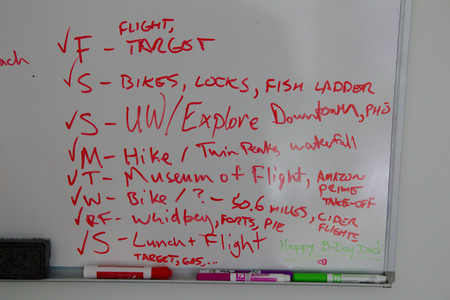 FLIGHT,
✓F - TARGET
✓S - BIKES, LOCKS, FISH LADDER
✓S - UW/Explore Downtown, PHỞ
✓M - Hike / Twin Peaks, waterfall
✓T - Museum of Flight, AMAZON PRIME TAKE-OFF
✓W - Bike / ? - 50.6 MILES, CIDER FLIGHTS
✓F - Whidbey, FORTS, PIE
✓S - Lunch + Flight
TARGET, GAS, ...
Happy B-Day Dad